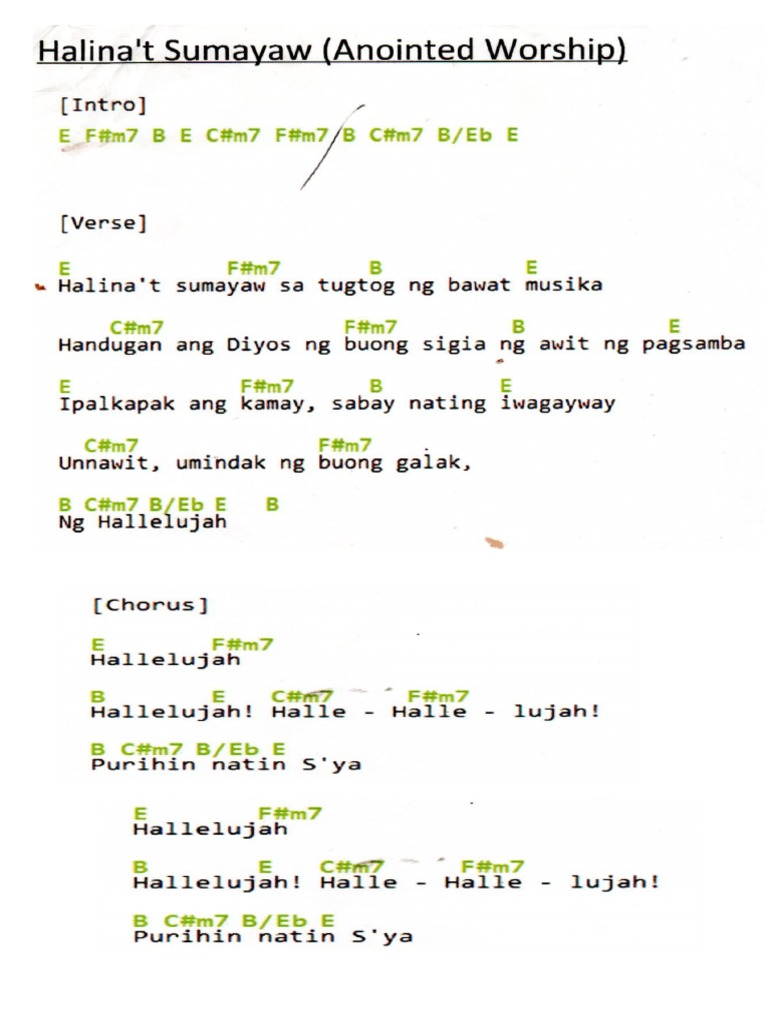 Halina't Sumayaw (Anointed Worship)
[Intro]
E F#m7 B E C#m7 F#m7 B C#m7 B/Eb E
[Verse]
E F#m7 B E
Halina't sumayaw sa tugtog ng bawat musika
C#m7 F#m7 B E
Handugan ang Diyos ng buong sigia ng awit ng pagsamba
E F#m7 B E
Ipalkapak ang kamay, sabay nating iwagayway
C#m7 F#m7
Unnawit, umindak ng buong galak,
B C#m7 B/Eb E B
Ng Hallelujah
[Chorus]
E F#m7
Hallelujah
B E C#m7 F#m7
Hallelujah! Halle - Halle - lujah!
B C#m7 B/Eb E
Purihin natin S'ya
E F#m7
Hallelujah
B E C#m7 F#m7
Hallelujah! Halle - Halle - lujah!
B C#m7 B/Eb E
Purihin natin S'ya